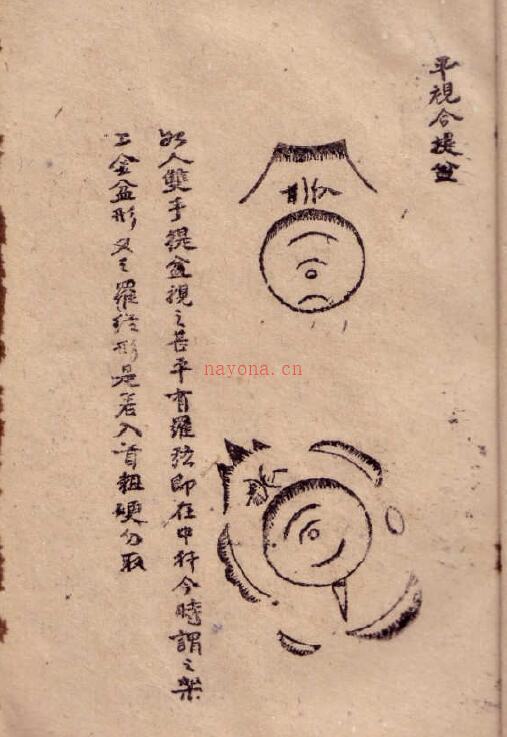 平視合提盆
人雙手提盆視之甚平有羅絃即在中扦今時謂之
金盆形又羅絃形是若入首粗硬勿取
nayona.cn